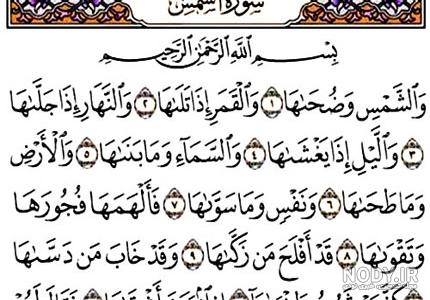 سُورَةُ الشَّمْسِ
بِسْمِ ٱللَّهِ ٱلرَّحْمَٰنِ ٱلرَّحِيمِ
وَٱلشَّمْسِ وَضُحَىٰهَا ١ وَٱلْقَمَرِ إِذَا تَلَىٰهَا ٢ وَٱلنَّهَارِ إِذَا جَلَّىٰهَا
٣ وَٱلَّيْلِ إِذَا يَغْشَىٰهَا ٤ وَٱلسَّمَآءِ وَمَا بَنَىٰهَا ٥ وَٱلْأَرْضِ
وَمَا طَحَىٰهَا ٦ وَنَفْسٍ وَمَا سَوَّىٰهَا ٧ فَأَلْهَمَهَا فُجُورَهَا
وَتَقْوَىٰهَا ٨ قَدْ أَفْلَحَ مَن زَكَّىٰهَا ٩ وَقَدْ خَابَ مَن دَسَّىٰهَا
NODY.IR